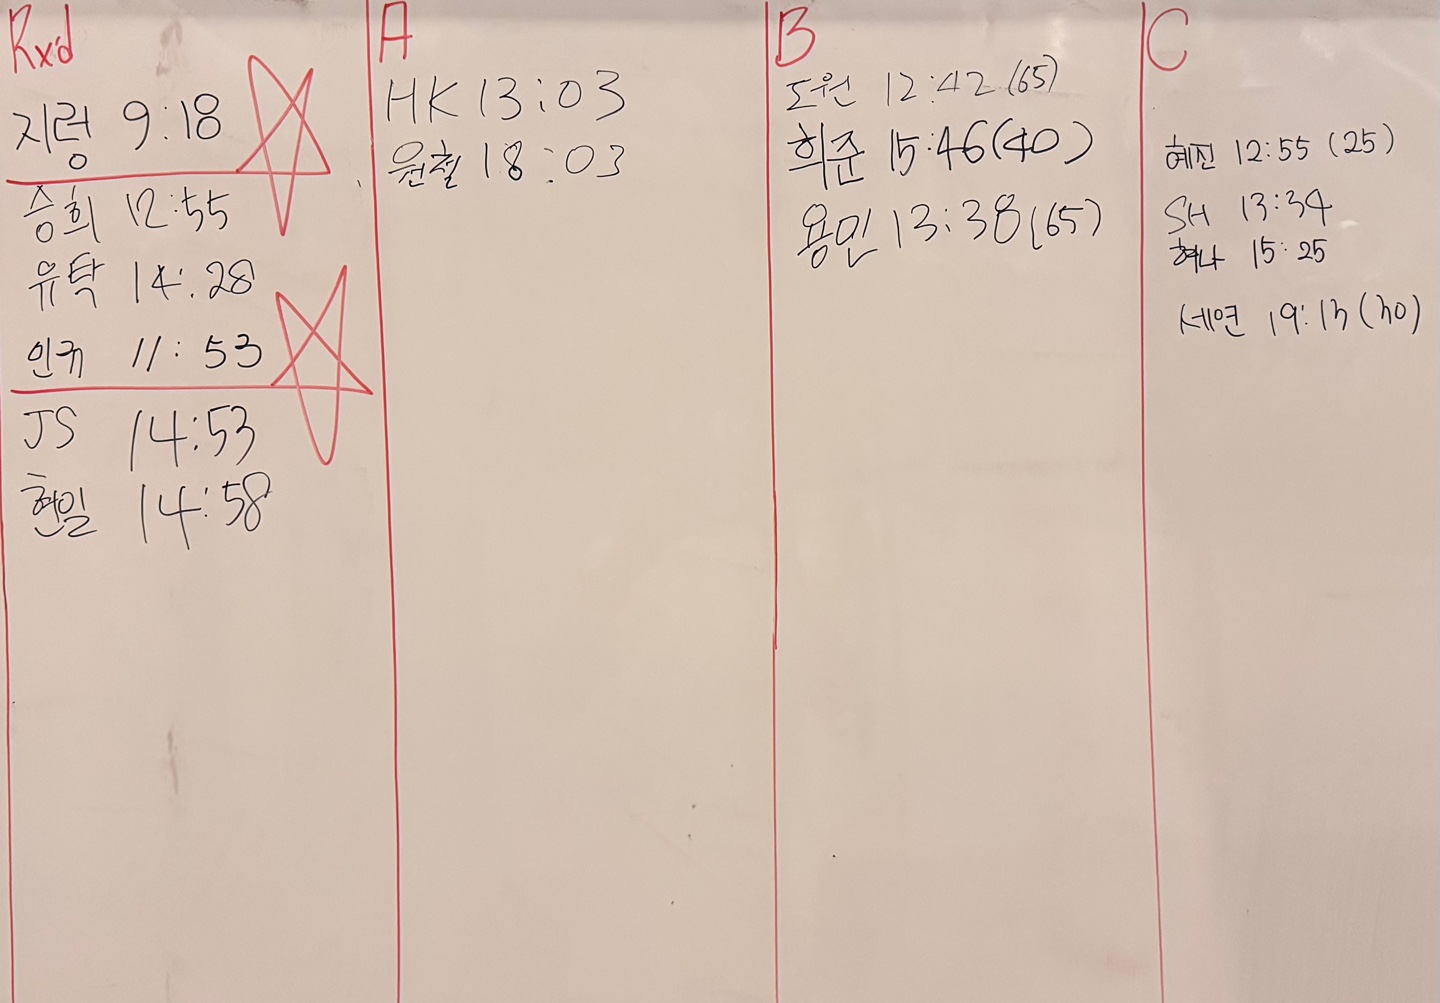 Rx'd
지령 9:18
승희 12:55
유탁 14:28
인규 11:53
JS 14:53
현일 14:58
A
HK 13:03
원철 18:03
B
도원 12:42 (65)
희준 15:46 (40)
용민 13:38 (65)
C
혜진 12:55 (25)
SH 13:34
혜나 15:25
세연 19:13 (30)